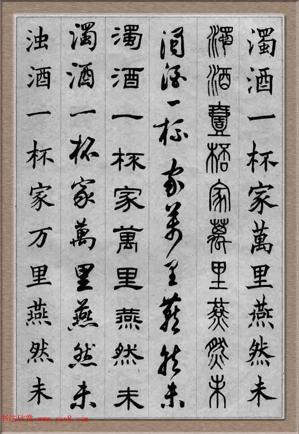 濁酒一杯家萬里燕然未
濁酒壹桮家萬里燕然未
濁酒一杯家萬里燕然未
濁酒一杯家萬里燕然未
濁酒一杯家萬里燕然未
浊酒一杯家万里燕然未